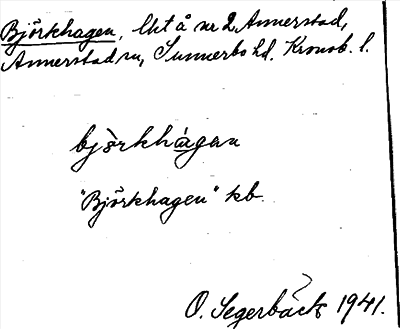 Björkhagen, lht å nr 2 Annerstad,
Annerstad sn, Sunnerbo hd. Kronob. l.
björkhagen
"Björkhagen" kb.
O. Segerbäck 1941.